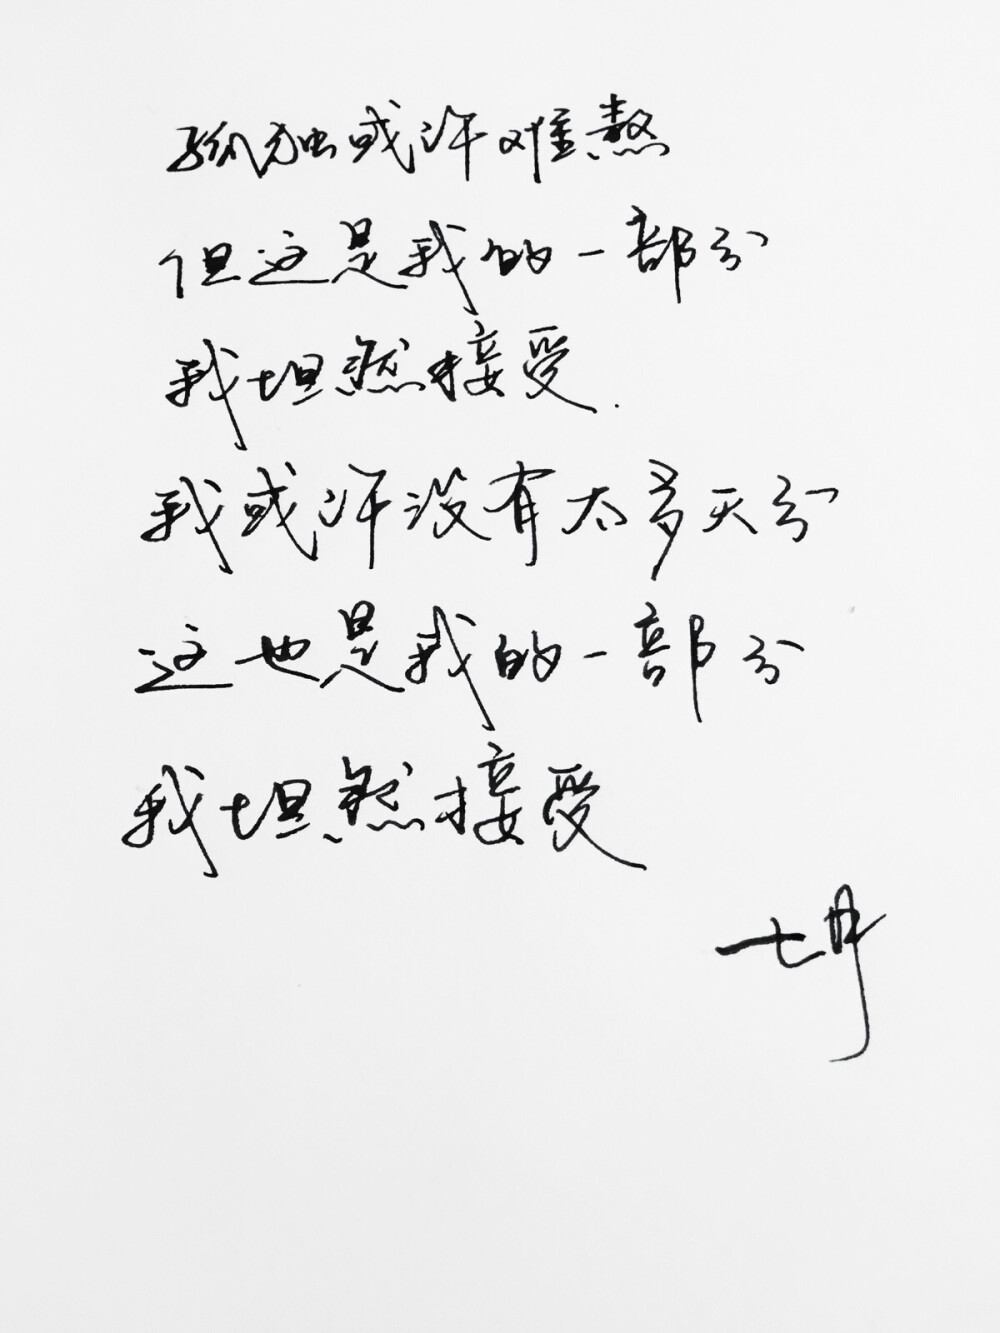 孤独或许难熬
但这是我的一部分
我坦然接受.
我或许没有太多天分
这也是我的一部分
我坦然接受
七月